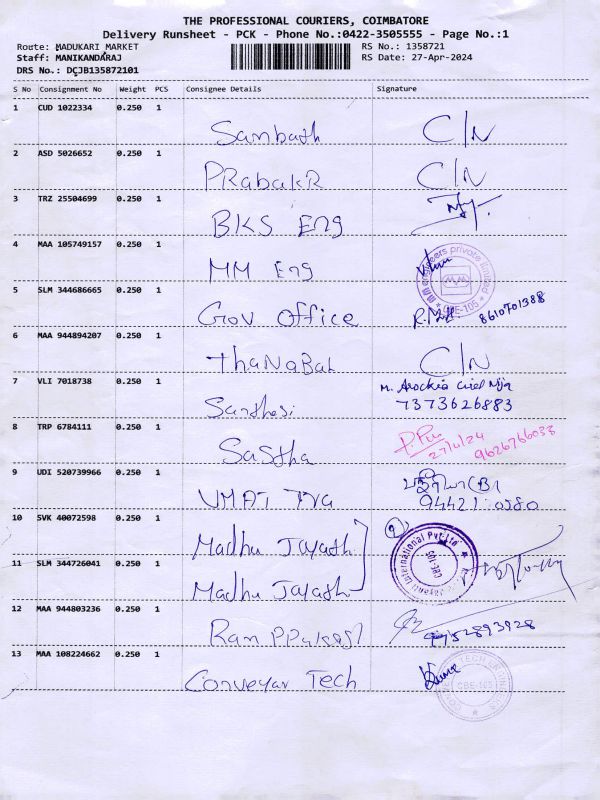 THE PROFESSIONAL COURIERS, COIMBATORE
Delivery Runsheet - PCK - Phone No.:0422-3505555 - Page No.:1
Route: MADUKARI MARKET RS No.: 1358721
Staff: MANIKANDARAJ RS Date: 27-Apr-2024
DRS No.: DCJB135872101
S No Consignment No Weight PCS Consignee Details Signature
1 CUD 1022334 0.250 1
Sambath C/N
2 ASD 5026652 0.250 1
PRabakR C/N
3 TRZ 25504699 0.250 1
BKS Eng
4 MAA 105749157 0.250 1
MM Eng
MM engineers private limited
CBE-105
5 SLM 344686665 0.250 1
Gov office 8610701388
6 MAA 944894207 0.250 1
ThaNaBaL C/N
7 VLI 7018738 0.250 1
M. Arockia
Santhosi 7373626883
8 TRP 6784111 0.250 1
Sastha 27/4/24 9626766033
9 UDI 520739966 0.250 1
10 SVK 40072598 0.250 1
Madhu Jayath 2
International Pvt Ltd
CBE-105
11 SLM 344726041 0.250 1
Madhu Jayath
12 MAA 944803236 0.250 1
13 MAA 108224662 0.250 1
Conveyar Tech
CBE-105